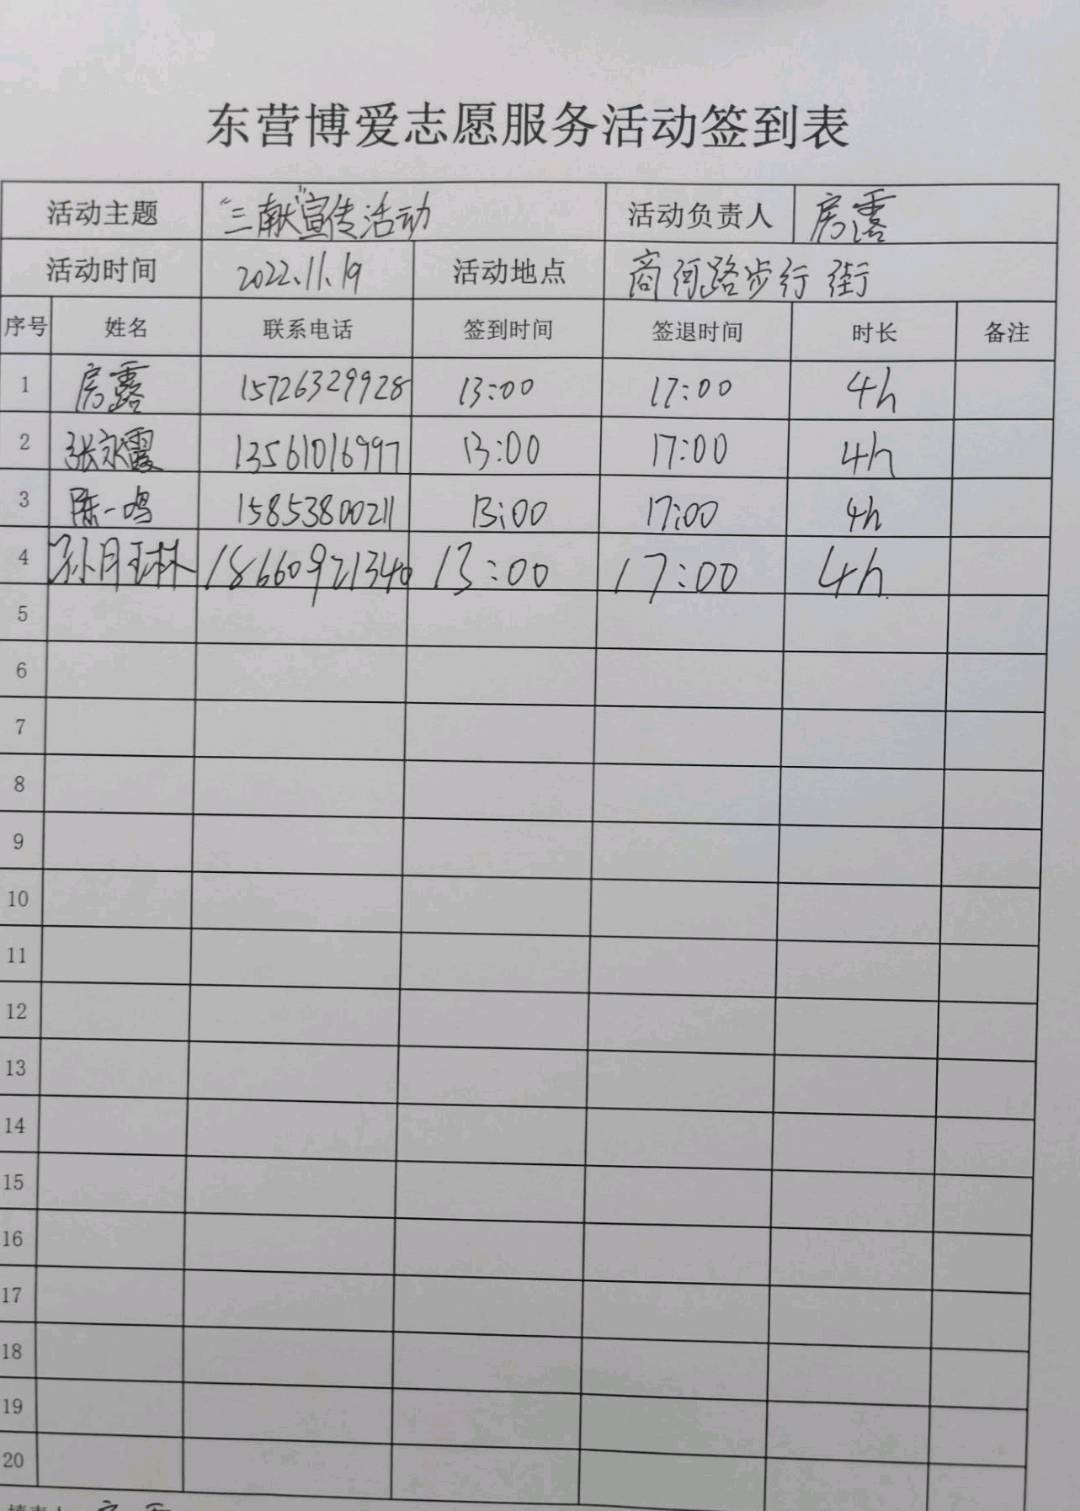 东营博爱志愿服务活动签到表
活动主题 “三献”宣传活动 活动负责人 房露
活动时间 2022.11.19 活动地点 商河路步行街
序号 姓名 联系电话 签到时间 签退时间 时长 备注
1 房露 15726329928 13:00 17:00 4h
2 张永霞 13561016997 13:00 17:00 4h
3 陈一鸣 15853800211 13:00 17:00 4h
4 孙月琳 18660921340 13:00 17:00 4h
5
6
7
8
9
10
11
12
13
14
15
16
17
18
19
20